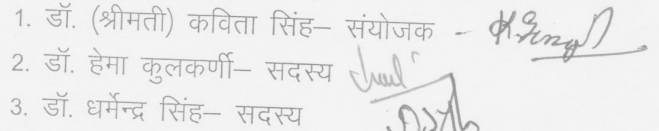 1. डॉ. (श्रीमती) कविता सिंह– संयोजक -
2. डॉ. हेमा कुलकर्णी– सदस्य
3. डॉ. धर्मेन्द्र सिंह– सदस्य